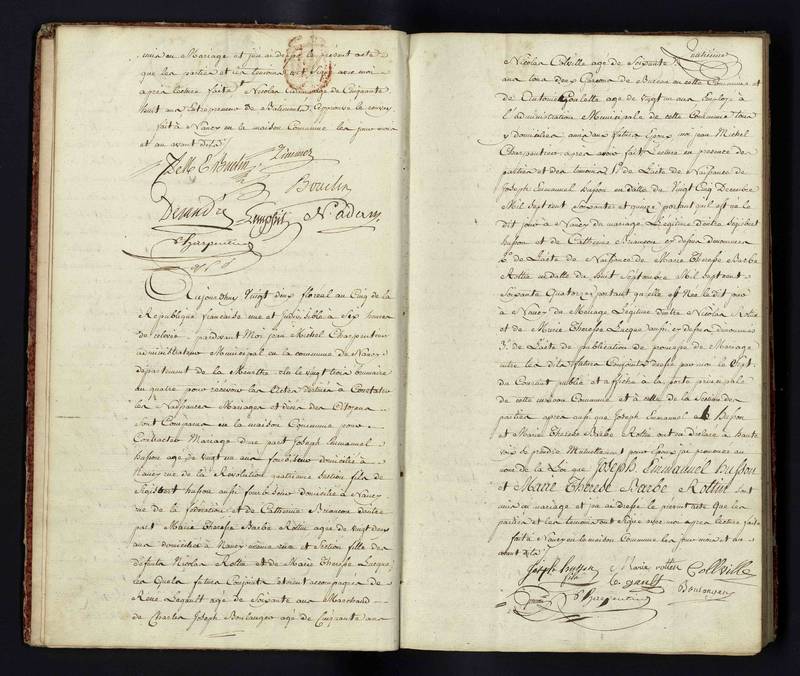 unis en Mariage et j'en ai dressé le présent acte
que les parties et les temoins ont Signé avec moi
après lecture faite Nicolas agé de Cinquante
huit ans Entrepreneur de Batiments approuvé le renvoy
fait à Nancy en la maison Commune les jour mois
et an avant dits
Zimmer
Bouchin
N. adam
Charpentier
Aujourdhuy Vingt deux floreal au Cinq de la
Republique française une et jndivisible à Six heures
de relevée pardevant Moi jean Michel Charpentier
administrateur Municipal en la commune de Nancy
departement de la Meurthe elu le vingt trois brumaire
an quatre pour recevoir les Actes destinés à Constater
les Naissances Mariages et décès des Citoyens
Sont Comparus en la maison Commune pour
Contracter Mariage dune part Joseph Emmanuel
husson age de vingt un ans fourbisseur domicilié à
Nancy rue de la Révolution quatrieme Section fils de
Sigisbert husson aussi fourbisseur domicilié à Nancy
rue de la fédération et de Catherine Briançon dautre
part Marie Theresse Barbe Rottin agée de vingt deux
ans domiciliée à Nancy même rue et Section fille des
défunts Nicolas Rottin et de Marie Theresse Lucque
les quels futurs Conjoints étoient accompagnés de
René Legault agé de Soixante ans Marchand
de Charles Joseph Boulanger agé de Cinquante ans
quatrieme
Nicolas Colville agé de Soixante
ans tous deux Garçons de Bureau en cette Commune et
de Antoine Goulette agé de vingt un ans Employé à
l'administration Municipale de cette Commune tous
y domiciliés amis aux futurs Epoux moi jean Michel
Charpentier après avoir fait Lecture en presence des
parties et des temoins 1º de Lacte de Naissance de
Joseph Emmanuel husson en datte du Vingt Cinq Decembre
Mil Sept cent Soixante et quinze portant qu'il est né le
dit jour à Nancy du mariage Legitime d'entre Sigisbert
husson et de Catherine Briançon cy dessus denommés
2º de Lacte de Naissance de Marie Theresse Barbe
Rottin en datte du huit Septembre Mil Sept cent
Soixante Quatorze portant qu'elle est Née le dit jour
à Nancy du Mariage Legitime d'entre Nicolas Rottin
et de Marie Theresse Lucque aussi cy dessus denommés
3º de Lacte de publication de promesse de Mariage
entre les dits futurs Conjoints dressé par moi le Sept
du Courant publié et affiché à la porte principale
de cette maison Commune et à celle de la Section des
parties après aussi que Joseph Emmanuel husson
et Marie Therese Barbe Rottin ont eu déclaré à haute
voix se prendre Mutuellement pour Epoux j'ai prononcé au
nom de la Loi que Joseph Emmanuel husson
et Marie Therese Barbe Rottin sont
unis en mariage et j'ai dressé le present acte que les
parties et les temoins ont Signé avec moi après lecture faite
fait à Nancy en la maison Commune les jour mois et an
avant dits
Joseph husson Marie rottin Collville
fils Le gault Boulanger
Charpentier